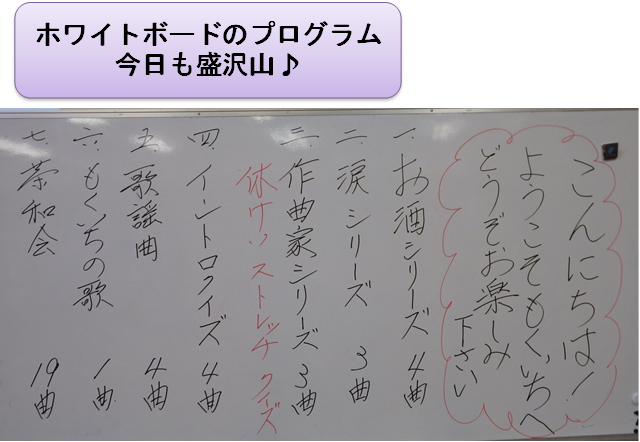 ホワイトボードのプログラム
今日も盛沢山♪
こんにちは!
ようこそもくいちへ
どうぞお楽しみ
下さい
一、お酒シリーズ 4曲
二、涙シリーズ 3曲
三、作曲家シリーズ 3曲
休けい ストレッチ クイズ
四、イントロクイズ 4曲
五、歌謡曲 4曲
六、もくいちの歌 1曲
七、茶和会 19曲